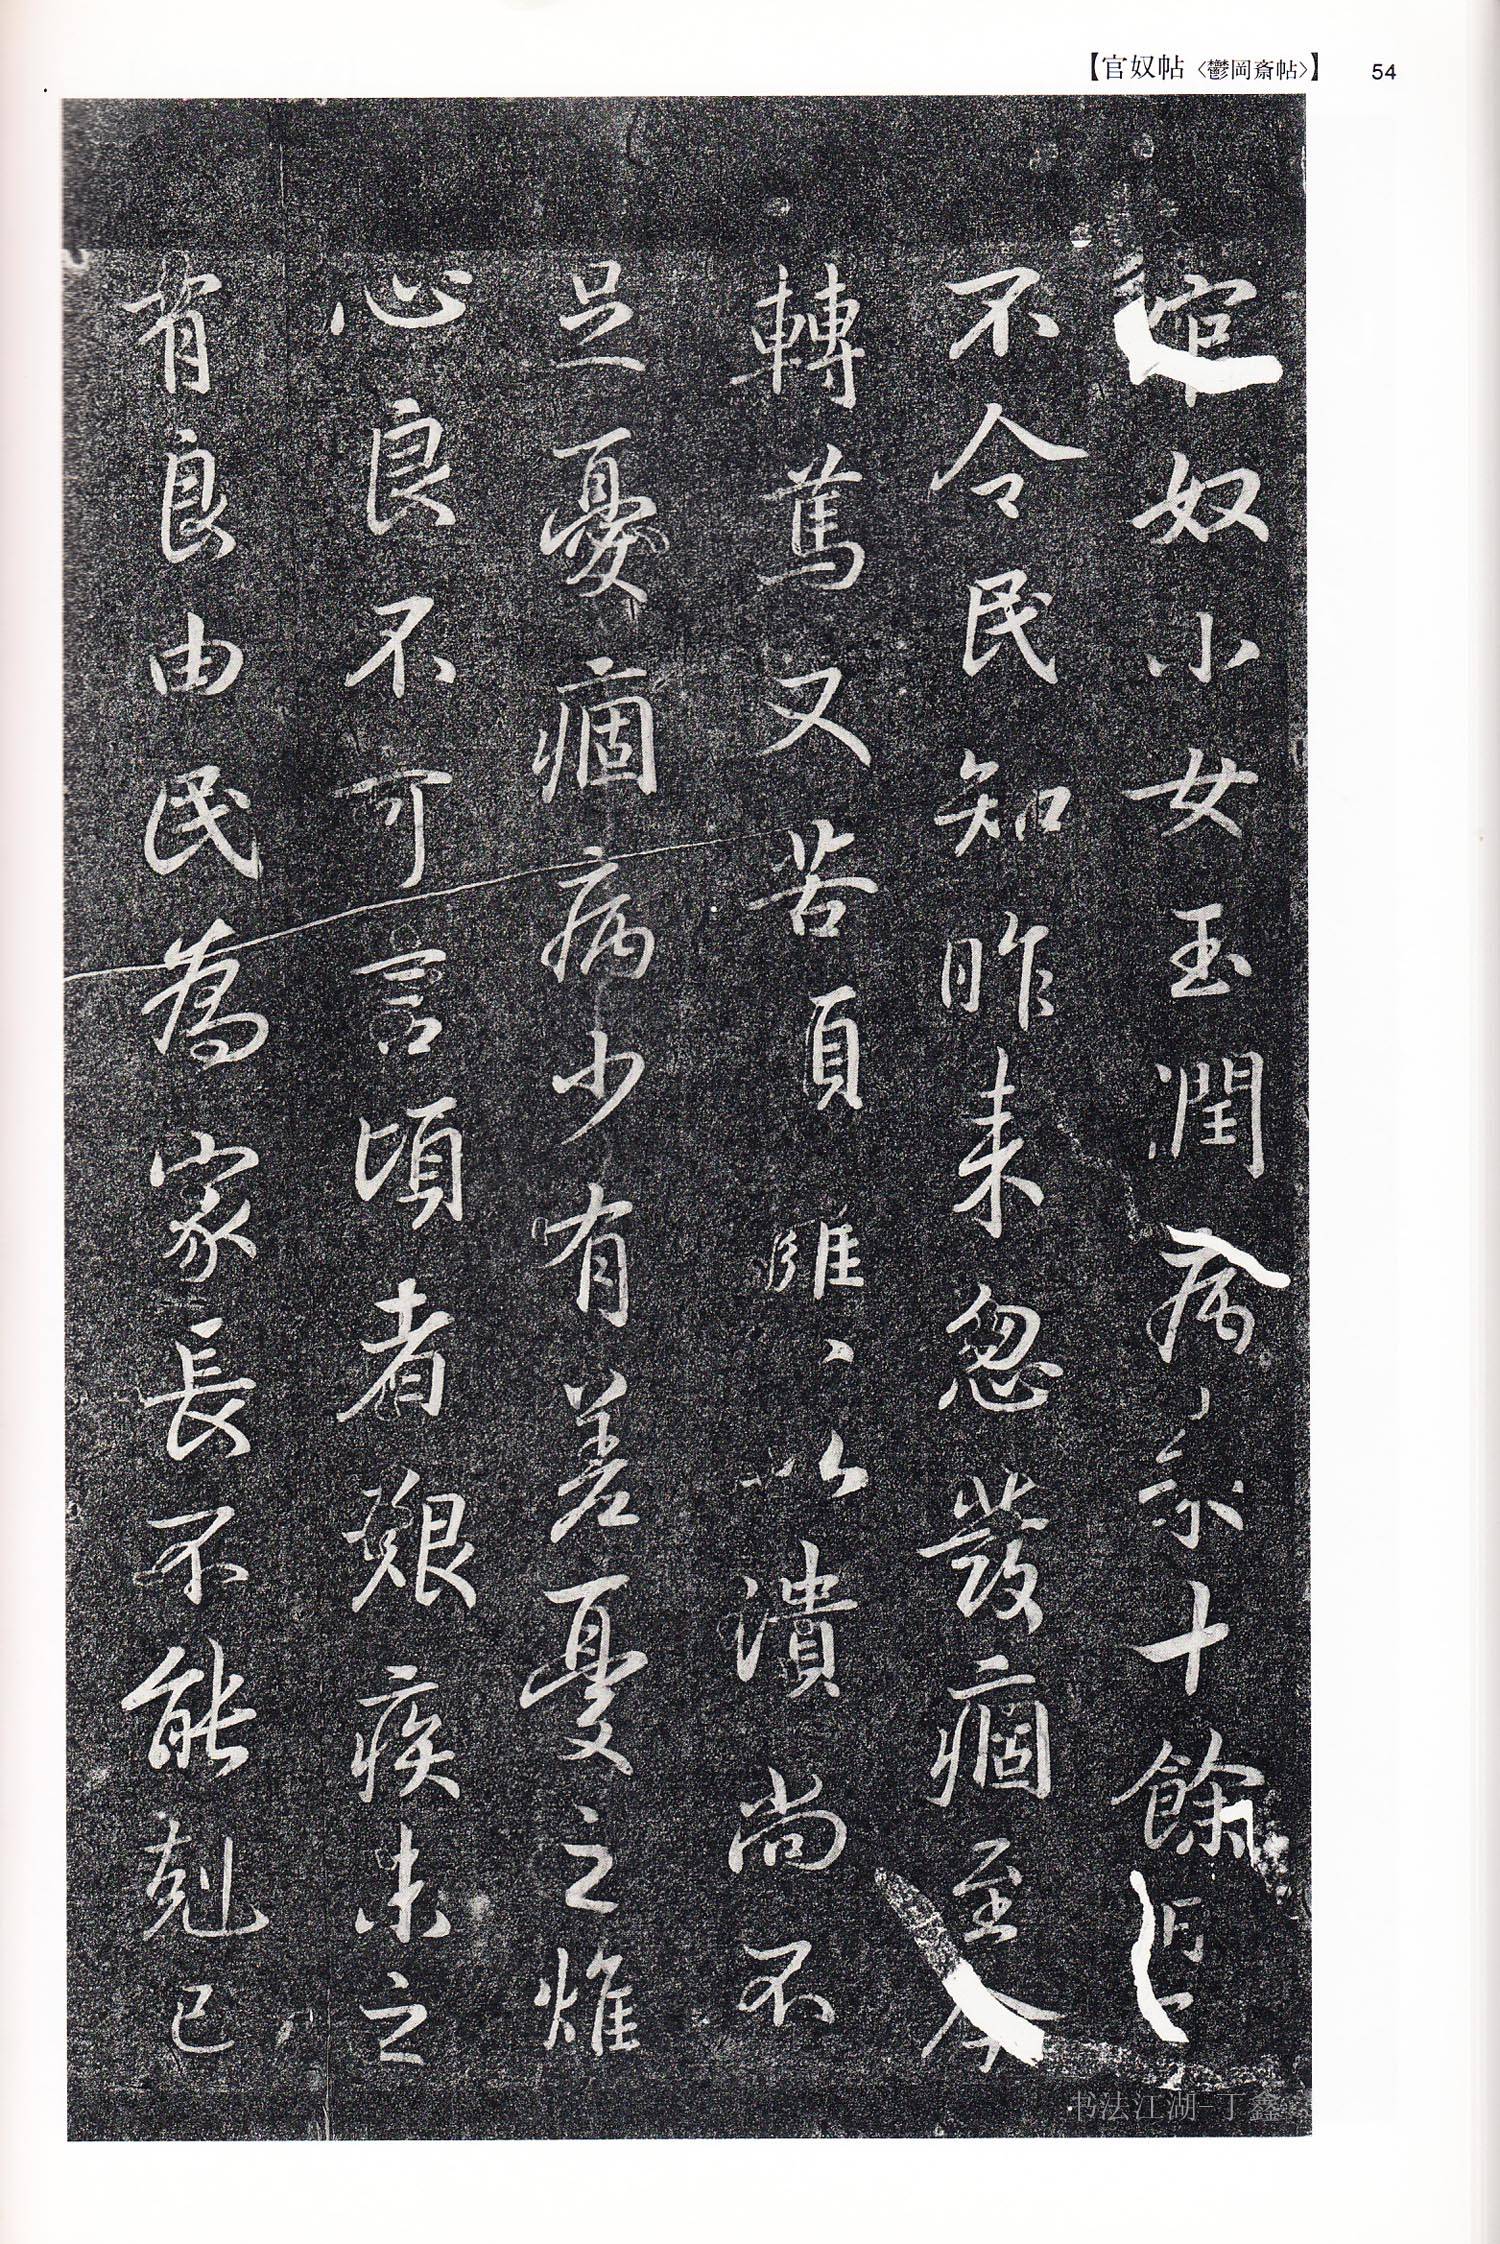 【官奴帖〈鬱岡斎帖〉】 54
官奴小女玉潤病來十餘日了
不令民知昨来忽發痼至今
轉篤又苦頭癰、以潰尚不
足憂痼病少有差憂之燋
心良不可言頃者艱疾未之
有良由民為家長不能剋己
书法江湖-丁鑫